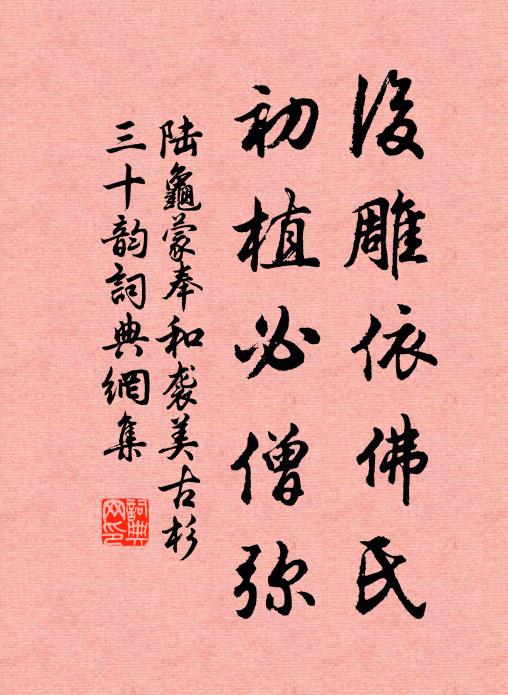 後雕依佛氏
初植必僧弥
陆龜蒙奉和袭美古杉
三十韵詞典網集
詞典网印